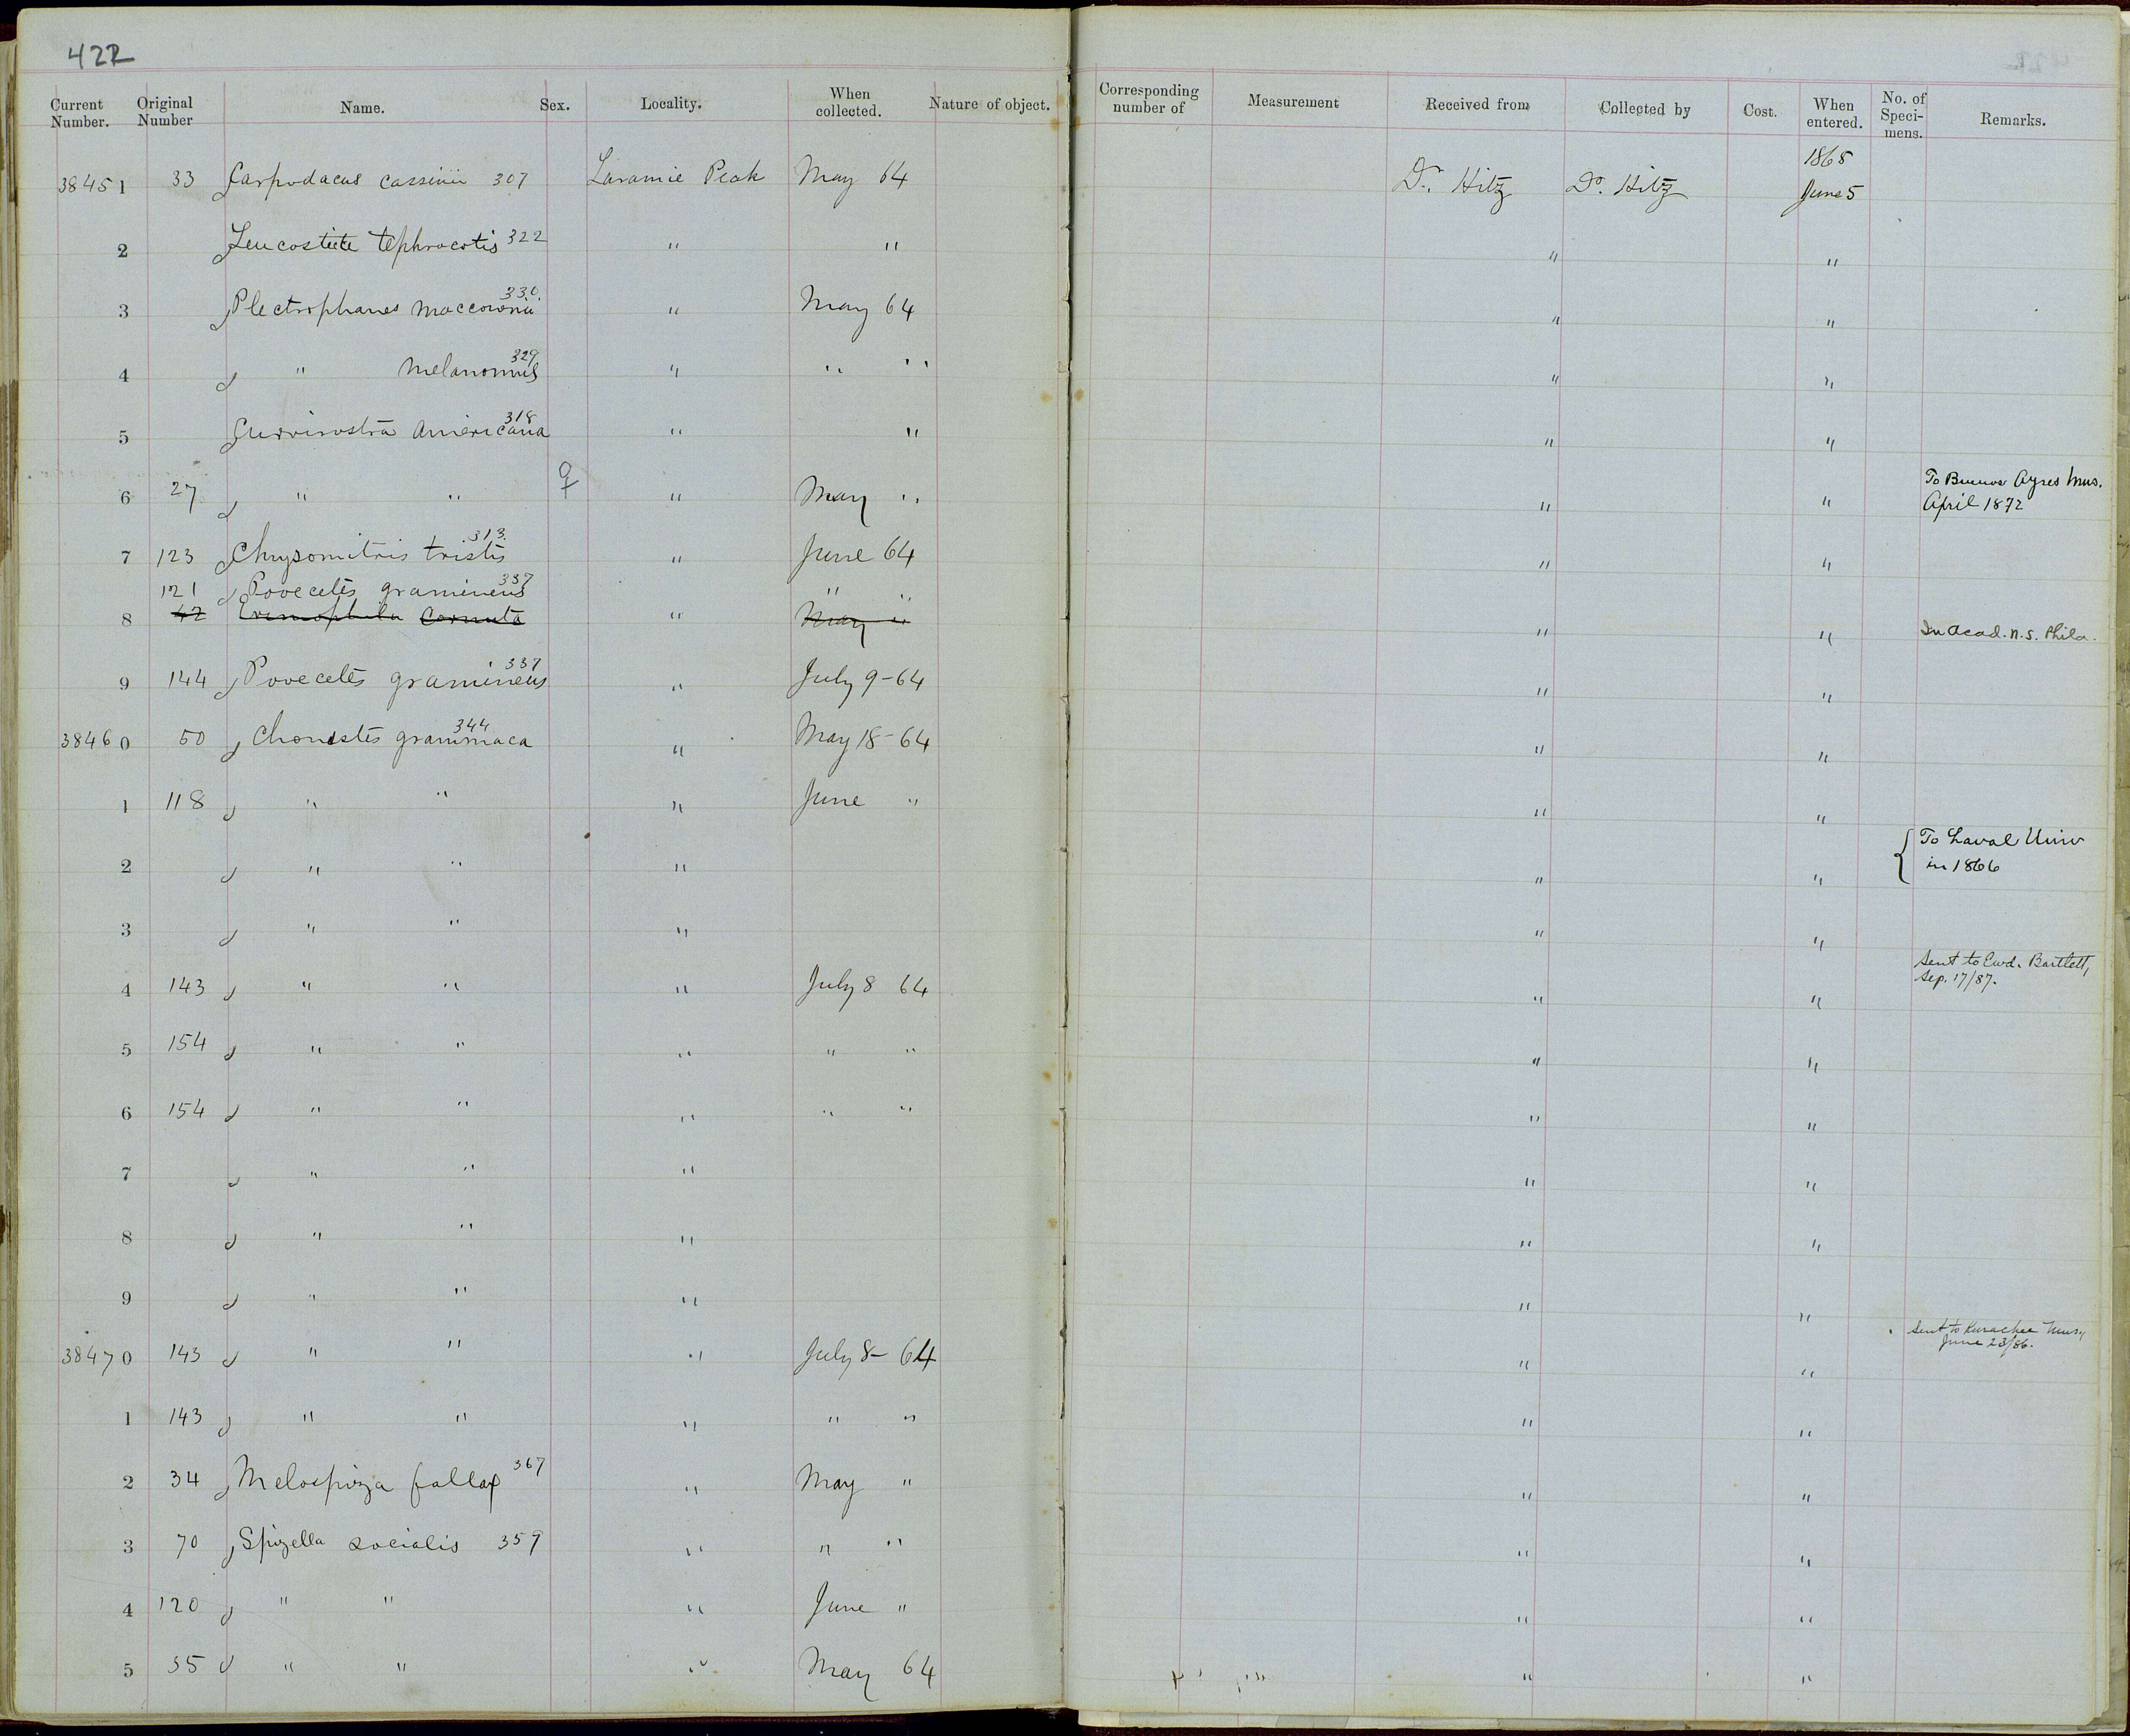 422
Current Number. Original Number Name. Sex. Locality. When collected. Nature of object. Corresponding number of Measurement Received from Collected by Cost. When entered. No. of Speci-mens. Remarks.
38451 33 Carpodacus cassinii 307 Laramie Peak May 64 Dr. Hitz Dr. Hitz 1865 June 5
2 Leucosticte tephrocotis 322 " " " "
3 Plectrophanes maccownii 330. " May 64 " "
4 " melanomus 329 " " " " "
5 Curvirostra Americana 318 " " " "
6 27 " " ♀ " May " " " To Buenos Ayres Mus. April 1872
7 123 Chrysomitris tristis 313. " June 64 " "
121 Povecetes gramineus 337 " "
8 42 Eremophila Cornuta " May " " " In Acad. N.S. Phila.
9 144 Poovecetes gramineus 337 " July 9-64 " "
38460 50 Chondestes grammaca 344 " May 18-64 " "
1 118 " " " June " " "
2 " " " " " { To Laval Univ in 1866
3 " " " " "
4 143 " " " July 8 64 " " Sent to Ewd. Bartlett, Sep. 17/87.
5 154 " " " " " " "
6 154 " " " " " " "
7 " " " " "
8 " " " " "
9 " " " " "
38470 143 " " " July 8-64 " " Sent to Kurachee Mus., June 23/86.
1 143 " " " " " " "
2 34 Melospiza fallax 367 " May " " "
3 70 Spizella socialis 359 " " " " "
4 120 " " " June " " "
5 35 " " " May 64 " "